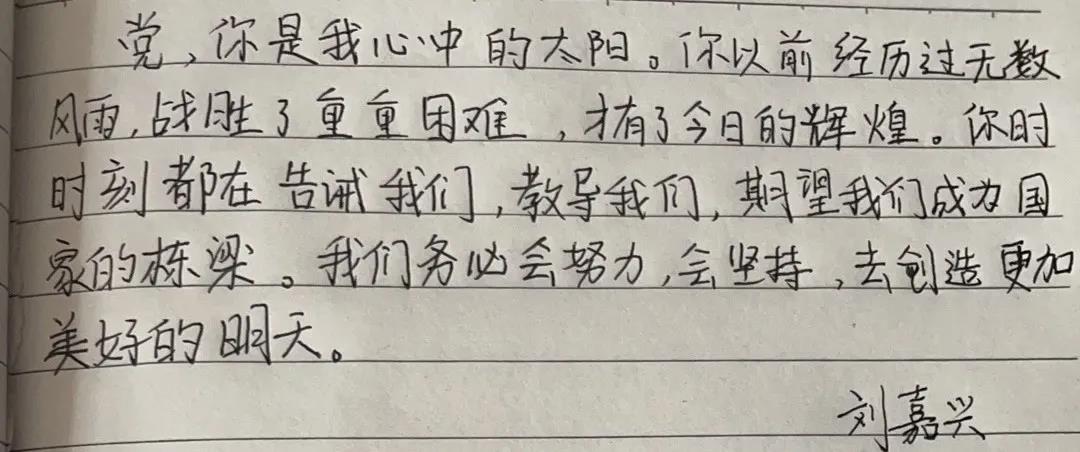 党,你是我心中的太阳。你以前经历过无数
风雨,战胜了重重困难,才有了今日的辉煌。你时
时刻都在告诫我们,教导我们,期望我们成为国
家的栋梁。我们务必会努力,会坚持,去创造更加
美好的明天。
刘嘉兴